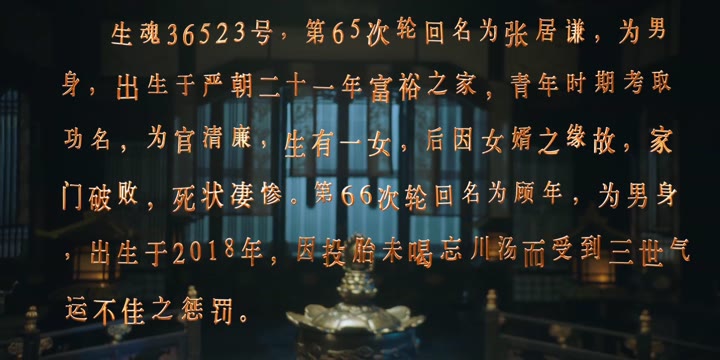 生魂36523号，第65次轮回名为张居谦，为男
身，出生于严朝二十一年富裕之家，青年时期考取
功名，为官清廉，生有一女，后因女婿之缘故，家
门破败，死状凄惨。第66次轮回名为顾年，为男身
，出生于2018年，因投胎未喝忘川汤而受到三世气
运不佳之惩罚。